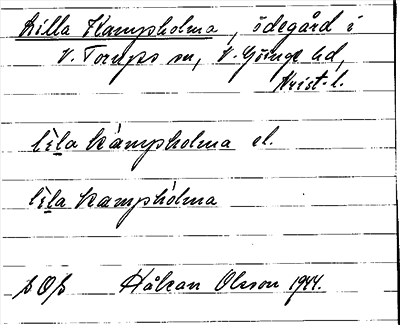 Lilla Kampholma, ödegård i
V. Torups sn, V. Göinge hd,
Krist. l.
lìla kámpholma el.
lìla kamphólma
Håkan Olsson 1944.